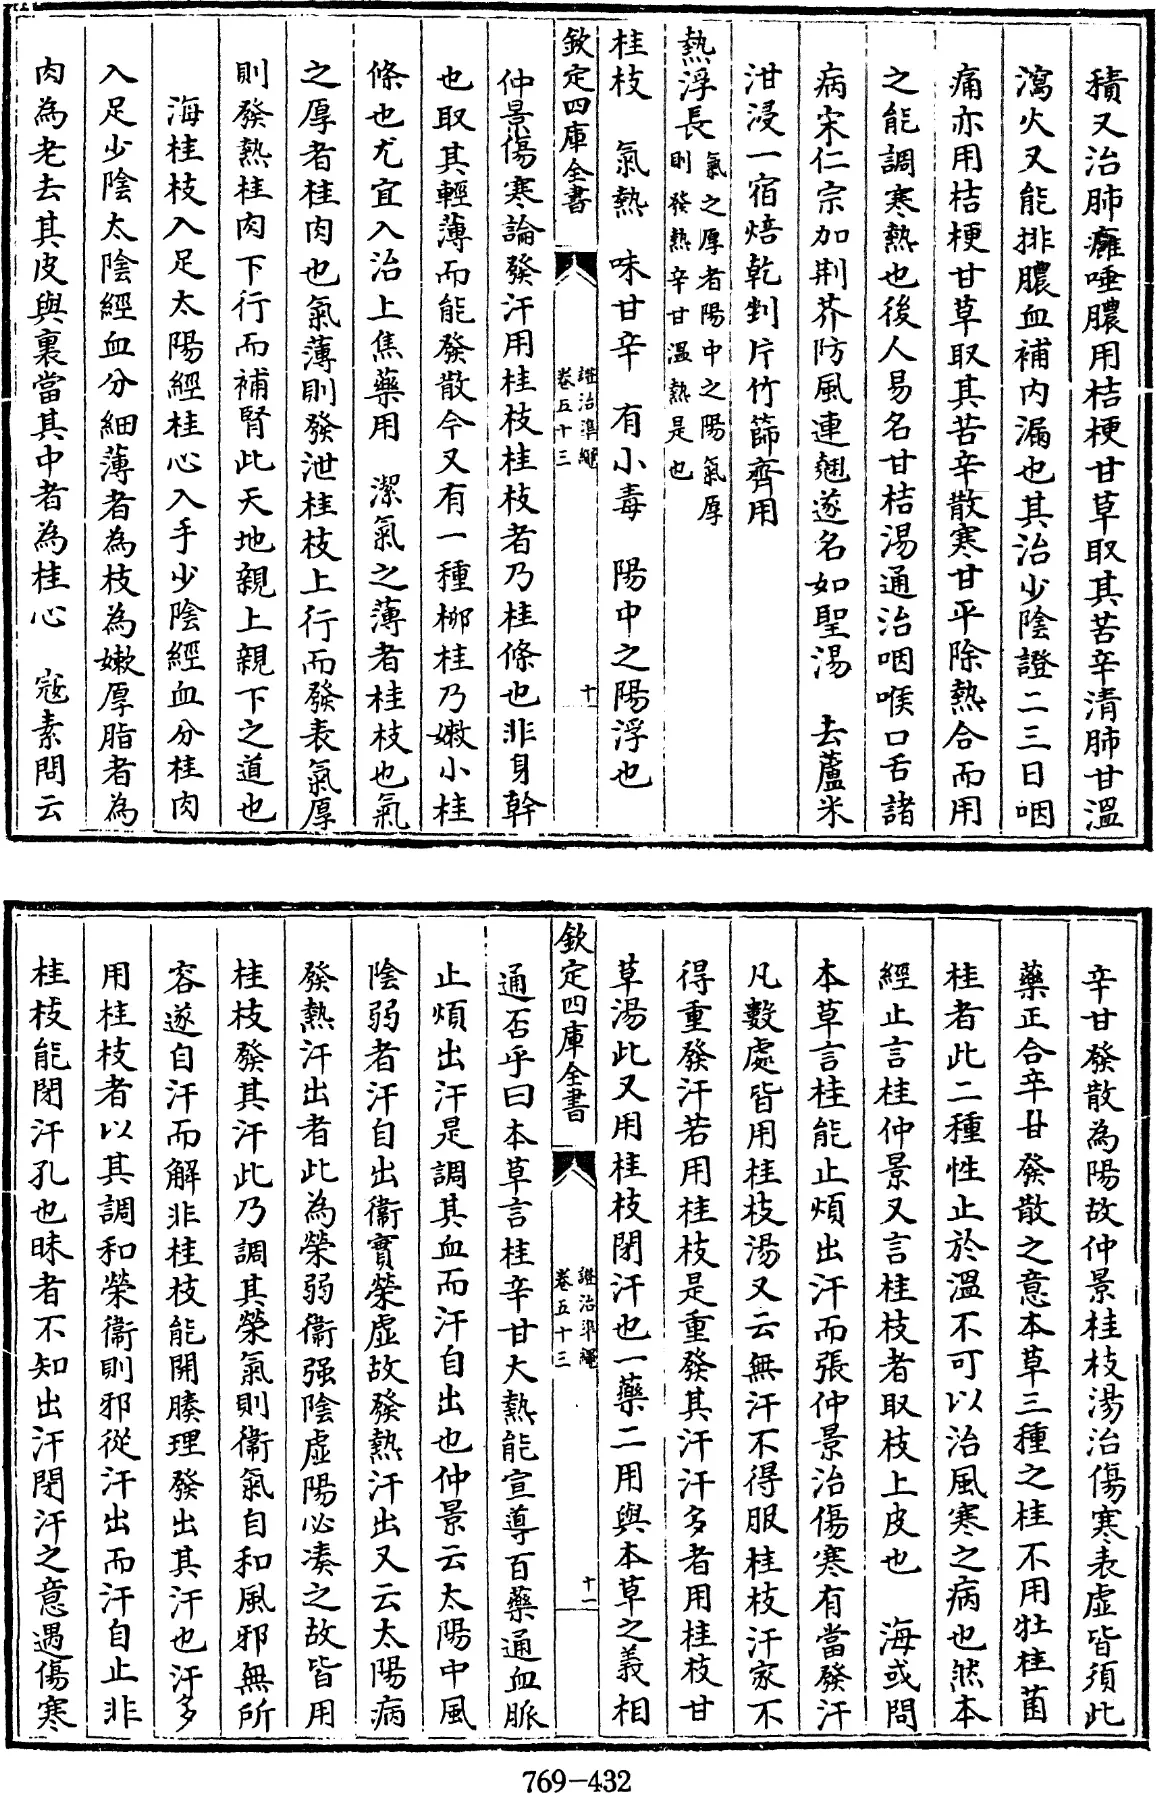 積又治肺癰唾膿用桔梗甘草取其苦辛清肺甘溫
瀉火又能排膿血補内漏也其治少陰證二三日咽
痛亦用桔梗甘草取其苦辛散寒甘平除熱合而用
之能調寒熱也後人易名甘桔湯通治咽喉口舌諸
病宋仁宗加荆芥防風連翹遂名如聖湯　去蘆米
泔浸一宿焙乾剉片竹篩齊用
桂枝　氣熱　味甘辛　有小毒　陽中之陽浮也
熱浮長氣之厚者陽中之陽氣厚
則發熱辛甘溫熱是也
欽定四庫全書
證治準繩
卷五十三
十
仲景傷寒論發汗用桂枝桂枝者乃桂條也非身幹
也取其輕薄而能發散今又有一種柳桂乃嫩小桂
條也尤宜入治上焦藥用　潔氣之薄者桂枝也氣
之厚者桂肉也氣薄則發泄桂枝上行而發表氣厚
則發熱桂肉下行而補腎此天地親上親下之道也
海桂枝入足太陽經桂心入手少陰經血分桂肉
入足少陰太陰經血分細薄者為枝為嫩厚脂者為
肉為老去其皮與裏當其中者為桂心　寇素問云
辛甘發散為陽故仲景桂枝湯治傷寒表虛皆須此
藥正合辛甘發散之意本草三種之桂不用牡桂菌
桂者此二種性止於溫不可以治風寒之病也然本
經止言桂仲景又言桂枝者取枝上皮也　海或問
本草言桂能止煩出汗而張仲景治傷寒有當發汗
凡數處皆用桂枝湯又云無汗不得服桂枝汗家不
得重發汗若用桂枝是重發其汗汗多者用桂枝甘
草湯此又用桂枝閉汗也一藥二用與本草之義相
欽定四庫全書
證治準繩
卷五十三
十一
通否乎曰本草言桂辛甘大熱能宣導百藥通血脈
止煩出汗是調其血而汗自出也仲景云太陽中風
陰弱者汗自出衞實榮虛故發熱汗出又云太陽病
發熱汗出者此為榮弱衞强陰虛陽必湊之故皆用
桂枝發其汗此乃調其榮氣則衞氣自和風邪無所
容遂自汗而解非桂枝能開腠理發出其汗也汗多
用桂枝者以其調和榮衞則邪從汗出而汗自止非
桂枝能閉汗孔也昧者不知出汗閉汗之意遇傷寒
769-432